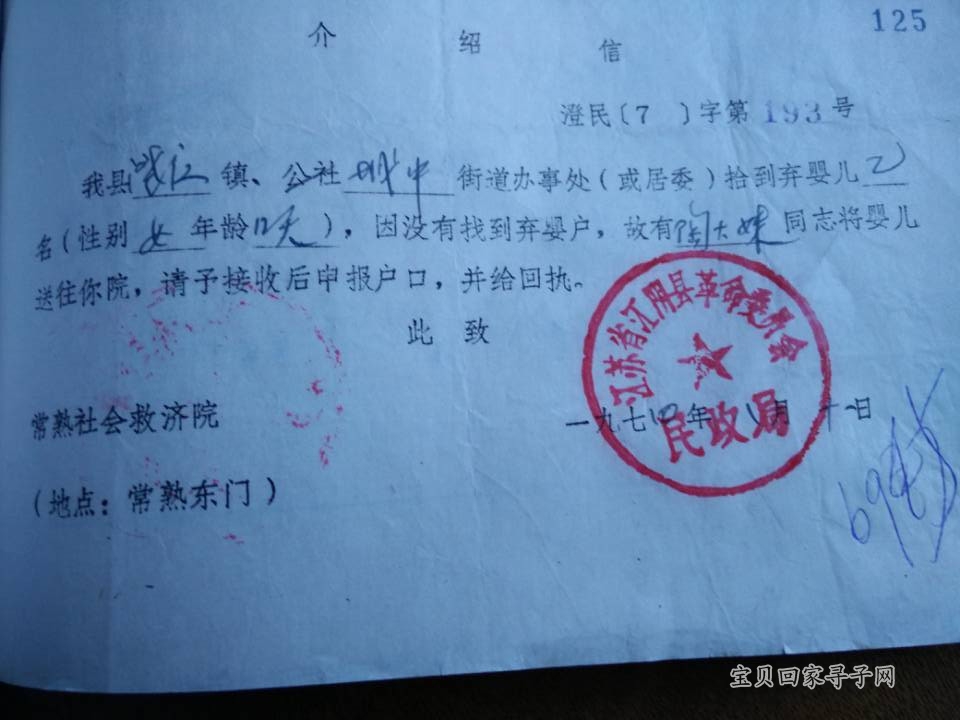 125
介 绍 信
澄民〔7 〕字第 193 号
我县 澄江 镇、公社 城中 街道办事处(或居委)拾到弃婴儿
名(性别 女 年龄 口天 ),因没有找到弃婴户,故有 陶大妹 同志将婴儿
送往你院,请予接收后申报户口,并给回执。
此 致
江苏省江阴县革命委员会
民政局
常熟社会救济院
一九七四年 八月 十一日
(地点:常熟东门)
宝贝回家寻子网